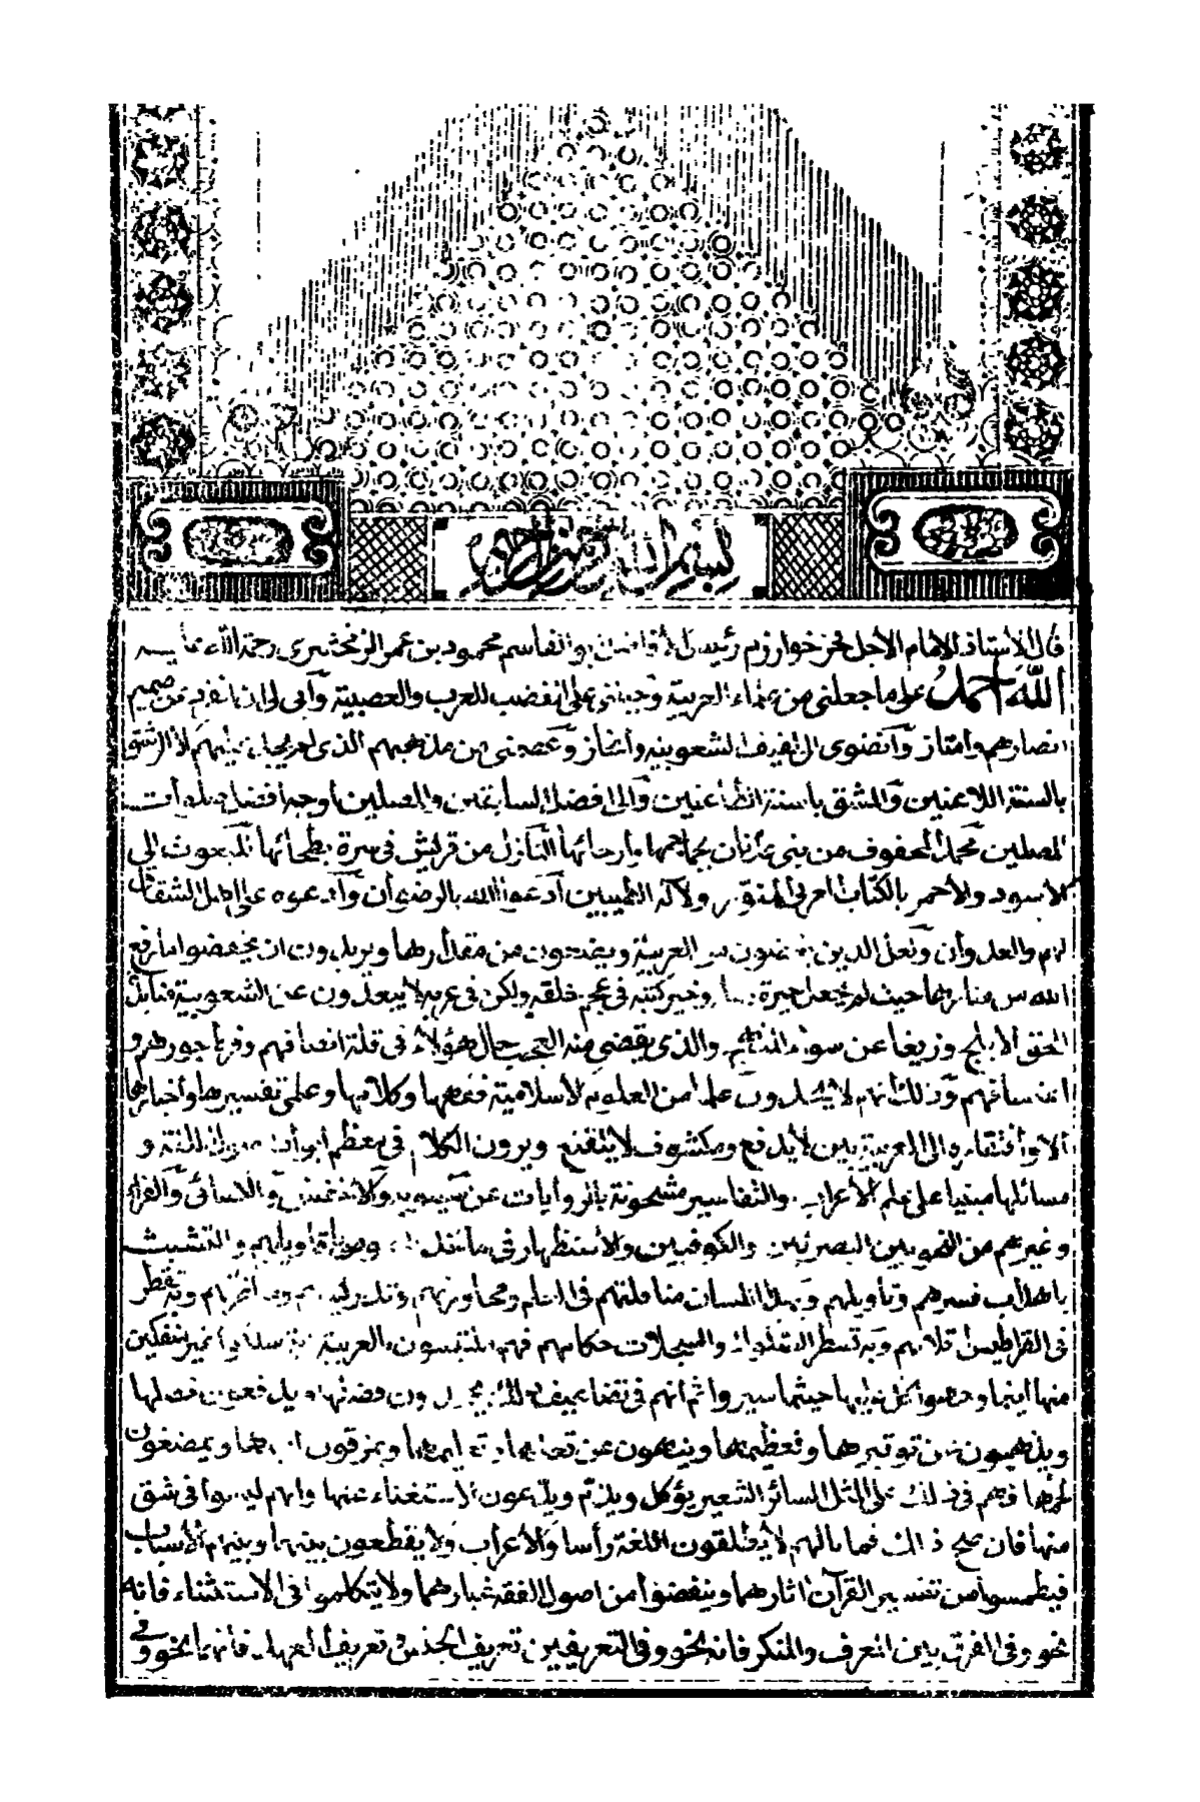 بسم الله الرحمن الرحيم
قال الأستاذ الإمام الأجل فخر خوارزم رئيس الأفاضل أبو القاسم محمود بن عمر الزمخشري رحمة الله عليه
الله أحمد على ما جعلني من علماء العربية وجبلني على الغضب للعرب والعصبية وأبى لي ان انفرد عن صميم
انصارهم وامتاز وأنضوى الى لفيف الشعوبية وأنحاز وعصمني من مذهبهم الذى لم يجد عليهم الا الرشق
بالسنة اللاعنين والمشق باسنة الطاعنين وإلى افضل السابقين والمصلين أوجه أفضل صلوات
المصلين محمد المحفوف من بنى عدنان بجماجمها وارحائها النازل من قريش فى سرة بطحائها المبعوث الى
الاسود والأحمر بالكتاب العربى المنور ولآله الطيبين أدعو الله بالرضوان وأدعوه على اهل الشقاق
لهم والعدوان ولعل الذين يغضون من العربية ويضعون من مقدارها ويريدون ان يخفضوا ما رفع
الله من منارها حيث لم يجعل خيرة رسله وخير كتبه فى عجم خلقه ولكن فى عربه لا يبعدون عن الشعوبية منابذة
للحق الأبلج وزيغا عن سواء المنهج والذى يقضى منه العجب حال هؤلاء فى قلة انصافهم وفرط جورهم و
اعتسافهم وذلك أنهم لا يجدون علما من العلوم الاسلامية فقهها وكلامها وعلمى تفسيرها وأخبارها
الا وافتقاره الى العربية بين لا يدفع ومكشوف لا يتقنع ويرون الكلام فى معظم أبواب اصول الفقه و
مسائلها مبنيا على علم الأعراب والتفاسير مشحونة بالروايات عن سيبويه والأخفش والكسائى والفراء
وغيرهم من النحويين البصريين والكوفيين والأستظهار فى مآخذ النصوص باقاويلهم والتشبث
باهداب فسرهم وتأويلهم وبهذا اللسان مناقلتهم فى العلم ومحاورتهم وتدريسهم ومناظرتهم وبه تقطر
فى القراطيس اقلامهم وبه تسطر الصكوك والسجلات حكامهم فهم ملتبسون بالعربية اية سلكوا غير منفكين
منها اينما وجهوا كل عليها حيثما سيروا ثم انهم فى تضاعيف ذلك يجحدون فضلها ويدفعون خصلها
ويذهبون عن توقيرها وتعظيمها وينهون عن تعلمها وتعليمها ويمزقون اديمها ويمضغون
لحمها فهم فى ذلك على المثل السائر الشعير يؤكل ويذم ويدعون الاستغناء عنها وانهم ليسوا فى شق
منها فان صح ذلك فما بالهم لا يطلقون اللغة رأسا والأعراب ولا يقطعون بينها وبينهم الأسباب
فيطمسوا من تفسير القرآن اثارهما وينفضوا من اصول الفقه غبارهما ولا يتكلموا فى الاستثناء فانه
نحو وفى الفرق بين المعرف والمنكر فانه نحو وفى التعريفين تعريف الجنس وتعريف العهد فانهما نحو وفى